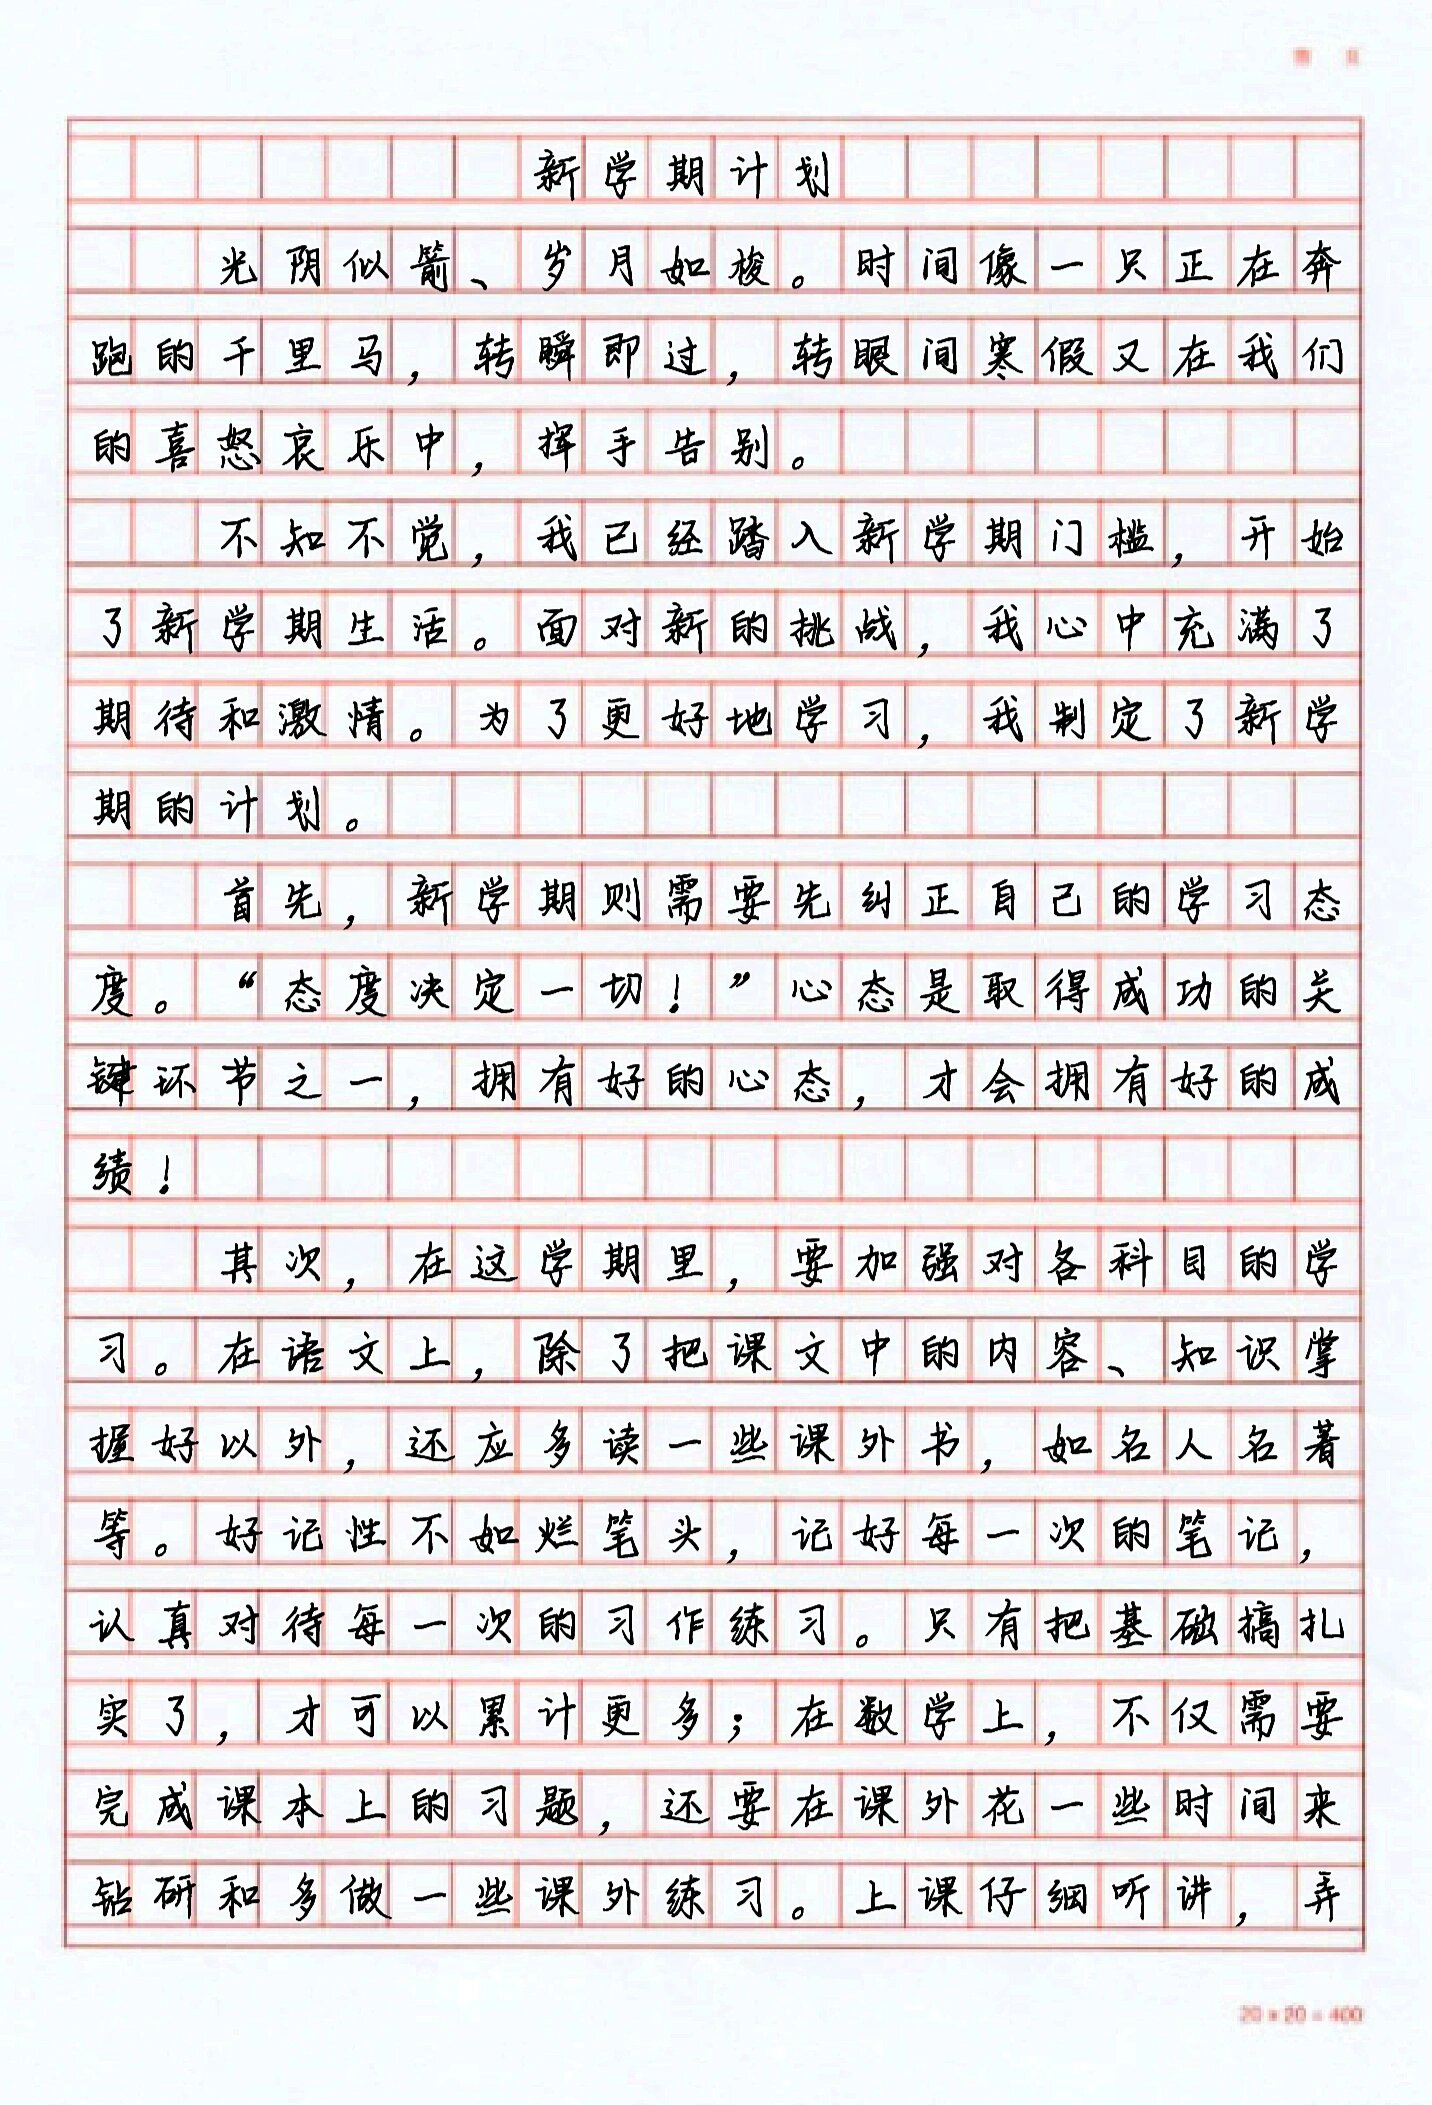 新学期计划
光阴似箭、岁月如梭。时间像一只正在奔
跑的千里马，转瞬即过，转眼间寒假又在我们
的喜怒哀乐中，挥手告别。
不知不觉，我已经踏入新学期门槛，开始
了新学期生活。面对新的挑战，我心中充满了
期待和激情。为了更好地学习，我制定了新学
期的计划。
首先，新学期则需要先纠正自己的学习态
度。“态度决定一切！”心态是取得成功的关
键环节之一，拥有好的心态，才会拥有好的成
绩！
其次，在这学期里，要加强对各科目的学
习。在语文上，除了把课文中的内容、知识掌
握好以外，还应多读一些课外书，如名人名著
等。好记性不如烂笔头，记好每一次的笔记，
认真对待每一次的习作练习。只有把基础搞扎
实了，才可以累计更多；在数学上，不仅需要
完成课本上的习题，还要在课外花一些时间来
钻研和多做一些课外练习。上课仔细听讲，弄
20×20=400